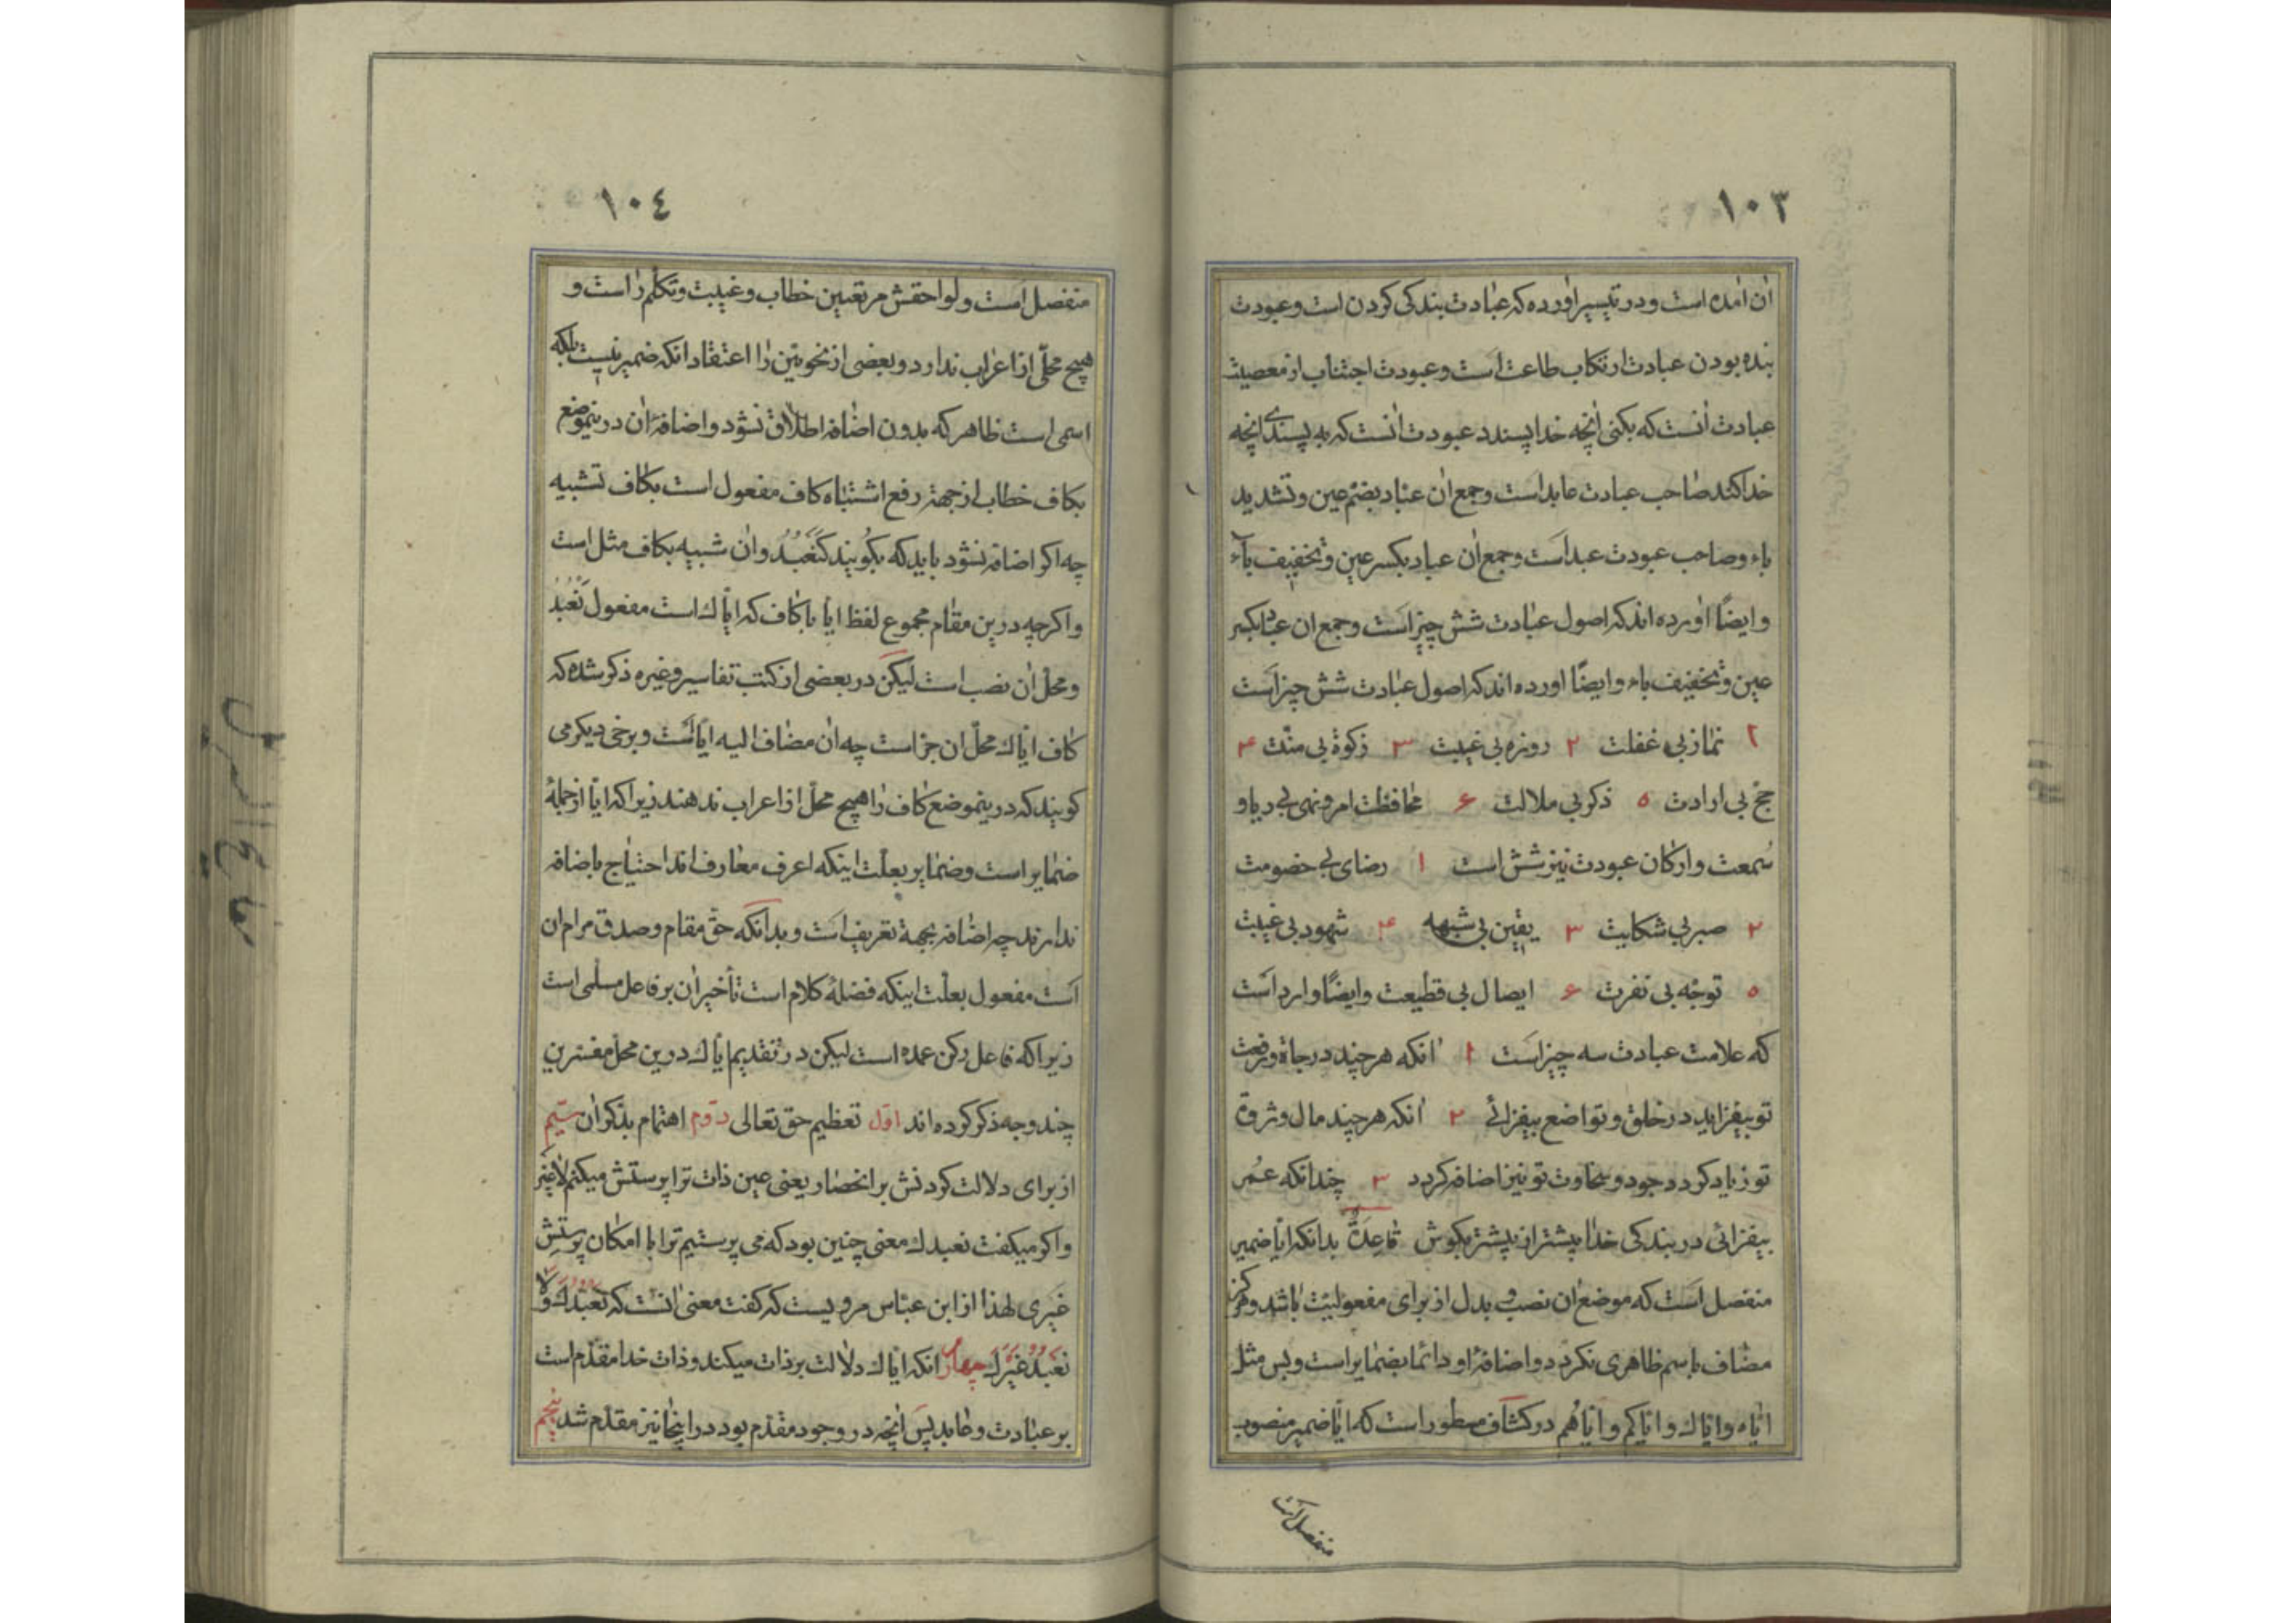 ١٠٣
ان امده است و در تیسیر اورده که عبادت بندکی کردن است و عبودت
بنده بودن عبادت ارتکاب طاعت است و عبودت اجتناب از معصیت
عبادت انست که بکنی انچه خدا پسندد عبودت انست که به پسندی انچه
خدا کند صاحب عبادت عابد است و جمع ان عباد بضم عین و تشدید
باء و صاحب عبودت عبد است و جمع ان عباد بکسر عین و تخفیف باء
و ایضًا اورده اند که اصول عبادت شش چیز است و جمع ان عباد بکسر
عین و تخفیف باء و ایضًا اورده اند که اصول عبادت شش چیز است
۱ نماز بی غفلت ۲ روزه بی غیبت ۳ زکوة بی منّت ۴
حجّ بی ارادت ۵ ذکر بی ملالت ۶ محافظت امر و نهی بی ریا و
سُمعت و ارکان عبودت نیز شش است ۱ رضای بی خصومت
۲ صبر بی شکایت ۳ یقین بی شبهه ۴ شهود بی غیبت
۵ توجّه بی نفرت ۶ ایصال بی قطیعت و ایضًا وارد است
که علامت عبادت سه چیز است ۱ انکه هر چند در جاه و رفعت
تو بیفزاید در خلق و تواضع بیفزائے ۲ انکه هر چند مال و ثروة
تو زیاد کردد جود و سخاوت تو نیز اضافه کردد ۳ چندانکه عُمر
بیفزائی در بندکی خدا بیشتر از پیشتر بکوش قاعِدَةٌ بدانکه ایّا ضمیر
منفصل است که موضع ان نصب و بدل از برای مفعولیّت باشد و هرکز
مضاف باسم ظاهری نکردد و اضافهٔ او دائما بضمایر است و بس مثل
ایّاه و ایّاك و ایّاکم و ایّاهُم در کشّاف مسطور است که ایّا ضمیر منصوب
منفصل است
١٠٤
منفصل است و لواحقش مر تعیین خطاب و غیبت و تکلّم را است و
هیچ محلّی از اعراب ندارد و بعضی از نحویّین را اعتقاد انکه ضمیر نیست بلکه
اسمی است ظاهر که بدون اضافه اطلاق نشود و اضافهٔ ان درینموضع
بکاف خطاب از جهة رفع اشتباه کاف مفعول است بکاف تشبیه
چه اکر اضافه نشود باید که بکویند کَنَعْبُدُ و ان شبیه بکاف مثل است
و اکرچه درین مقام مجموع لفظ ایّا با کاف که ایّاك است مفعول نَعْبُدُ
و محلّ ان نصب است لیکن در بعضی از کتب تفاسیر و غیره ذکر شده که
کاف ایّاك محلّ ان جرّ است چه ان مضاف الیه ایّا است و برخی دیکر می
کویند که درینموضع کاف را هیچ محلّ از اعراب ندهند زیراکه ایّا از جملهٔ
ضمایر است و ضمایر بعلّت اینکه اعرف معارف اند احتیاج باضافه
ندارند چه اضافه بجهة تعریف است و بدانکه حقّ مقام و صدق مرام ان
است مفعول بعلّت اینکه فضلهٔ کلام است تأخیر ان بر فاعل مسلمی است
زیراکه فاعل رکن عمده است لیکن در تقدیم ایّاك درین محلّ مفسّرین
چند وجه ذکر کرده اند اوّل تعظیم حق تعالی دوّم اهتمام بذکر ان سیّم
از برای دلالت کردنش بر انحصار یعنی عین ذات ترا پرستش میکنم لا غیر
و اکر میکفت نعبدك معنی چنین بود که می پرستیم ترا با امکان پرستش
غیری لهذا از ابن عبّاس مرویست که کفت معنی انست که نَعْبُدُكَ وَ لا
نَعْبُدُ غَیْرَكَ چهارم انکه ایّاك دلالت بر ذات میکند و ذات خدا مقدّم است
بر عبادت و عابد پس انچه در وجود مقدّم بود در اینجا نیز مقدّم شد پنجم